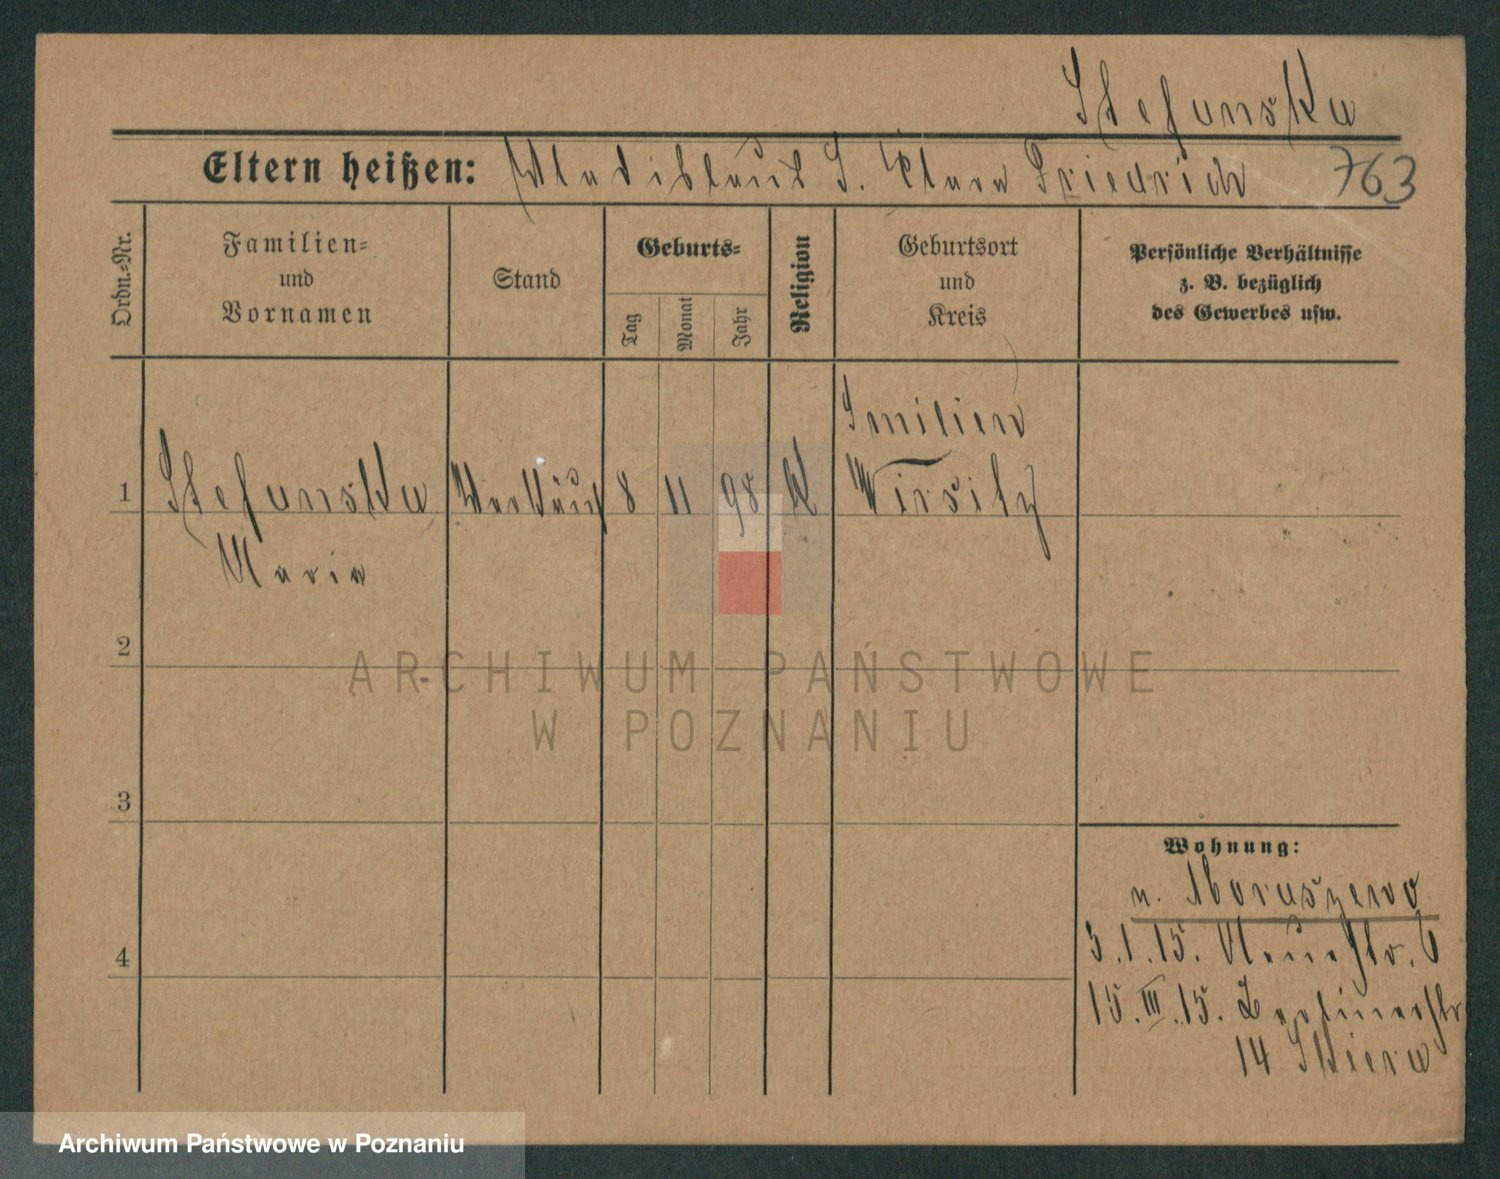 Stefanska
Eltern heißen: Wladislaus S. Clara Friedrich 763
Ordn.-Nr.
Familien-
und
Vornamen
Stand
Geburts-
Tag
Monat
Jahr
Religion
Geburtsort
und
Kreis
Persönliche Verhältnisse
z. B. bezüglich
des Gewerbes usw.
Smilien
1 Stefanska 8 11 98 K Wirsitz
Maria
2
3
Wohnung:
n.
3.1.15. Neuestr. 6
4
15.III.15. Berlinerstr
14 Skiera
ARCHIWUM PAŃSTWOWE
W POZNANIU
Archiwum Państwowe w Poznaniu